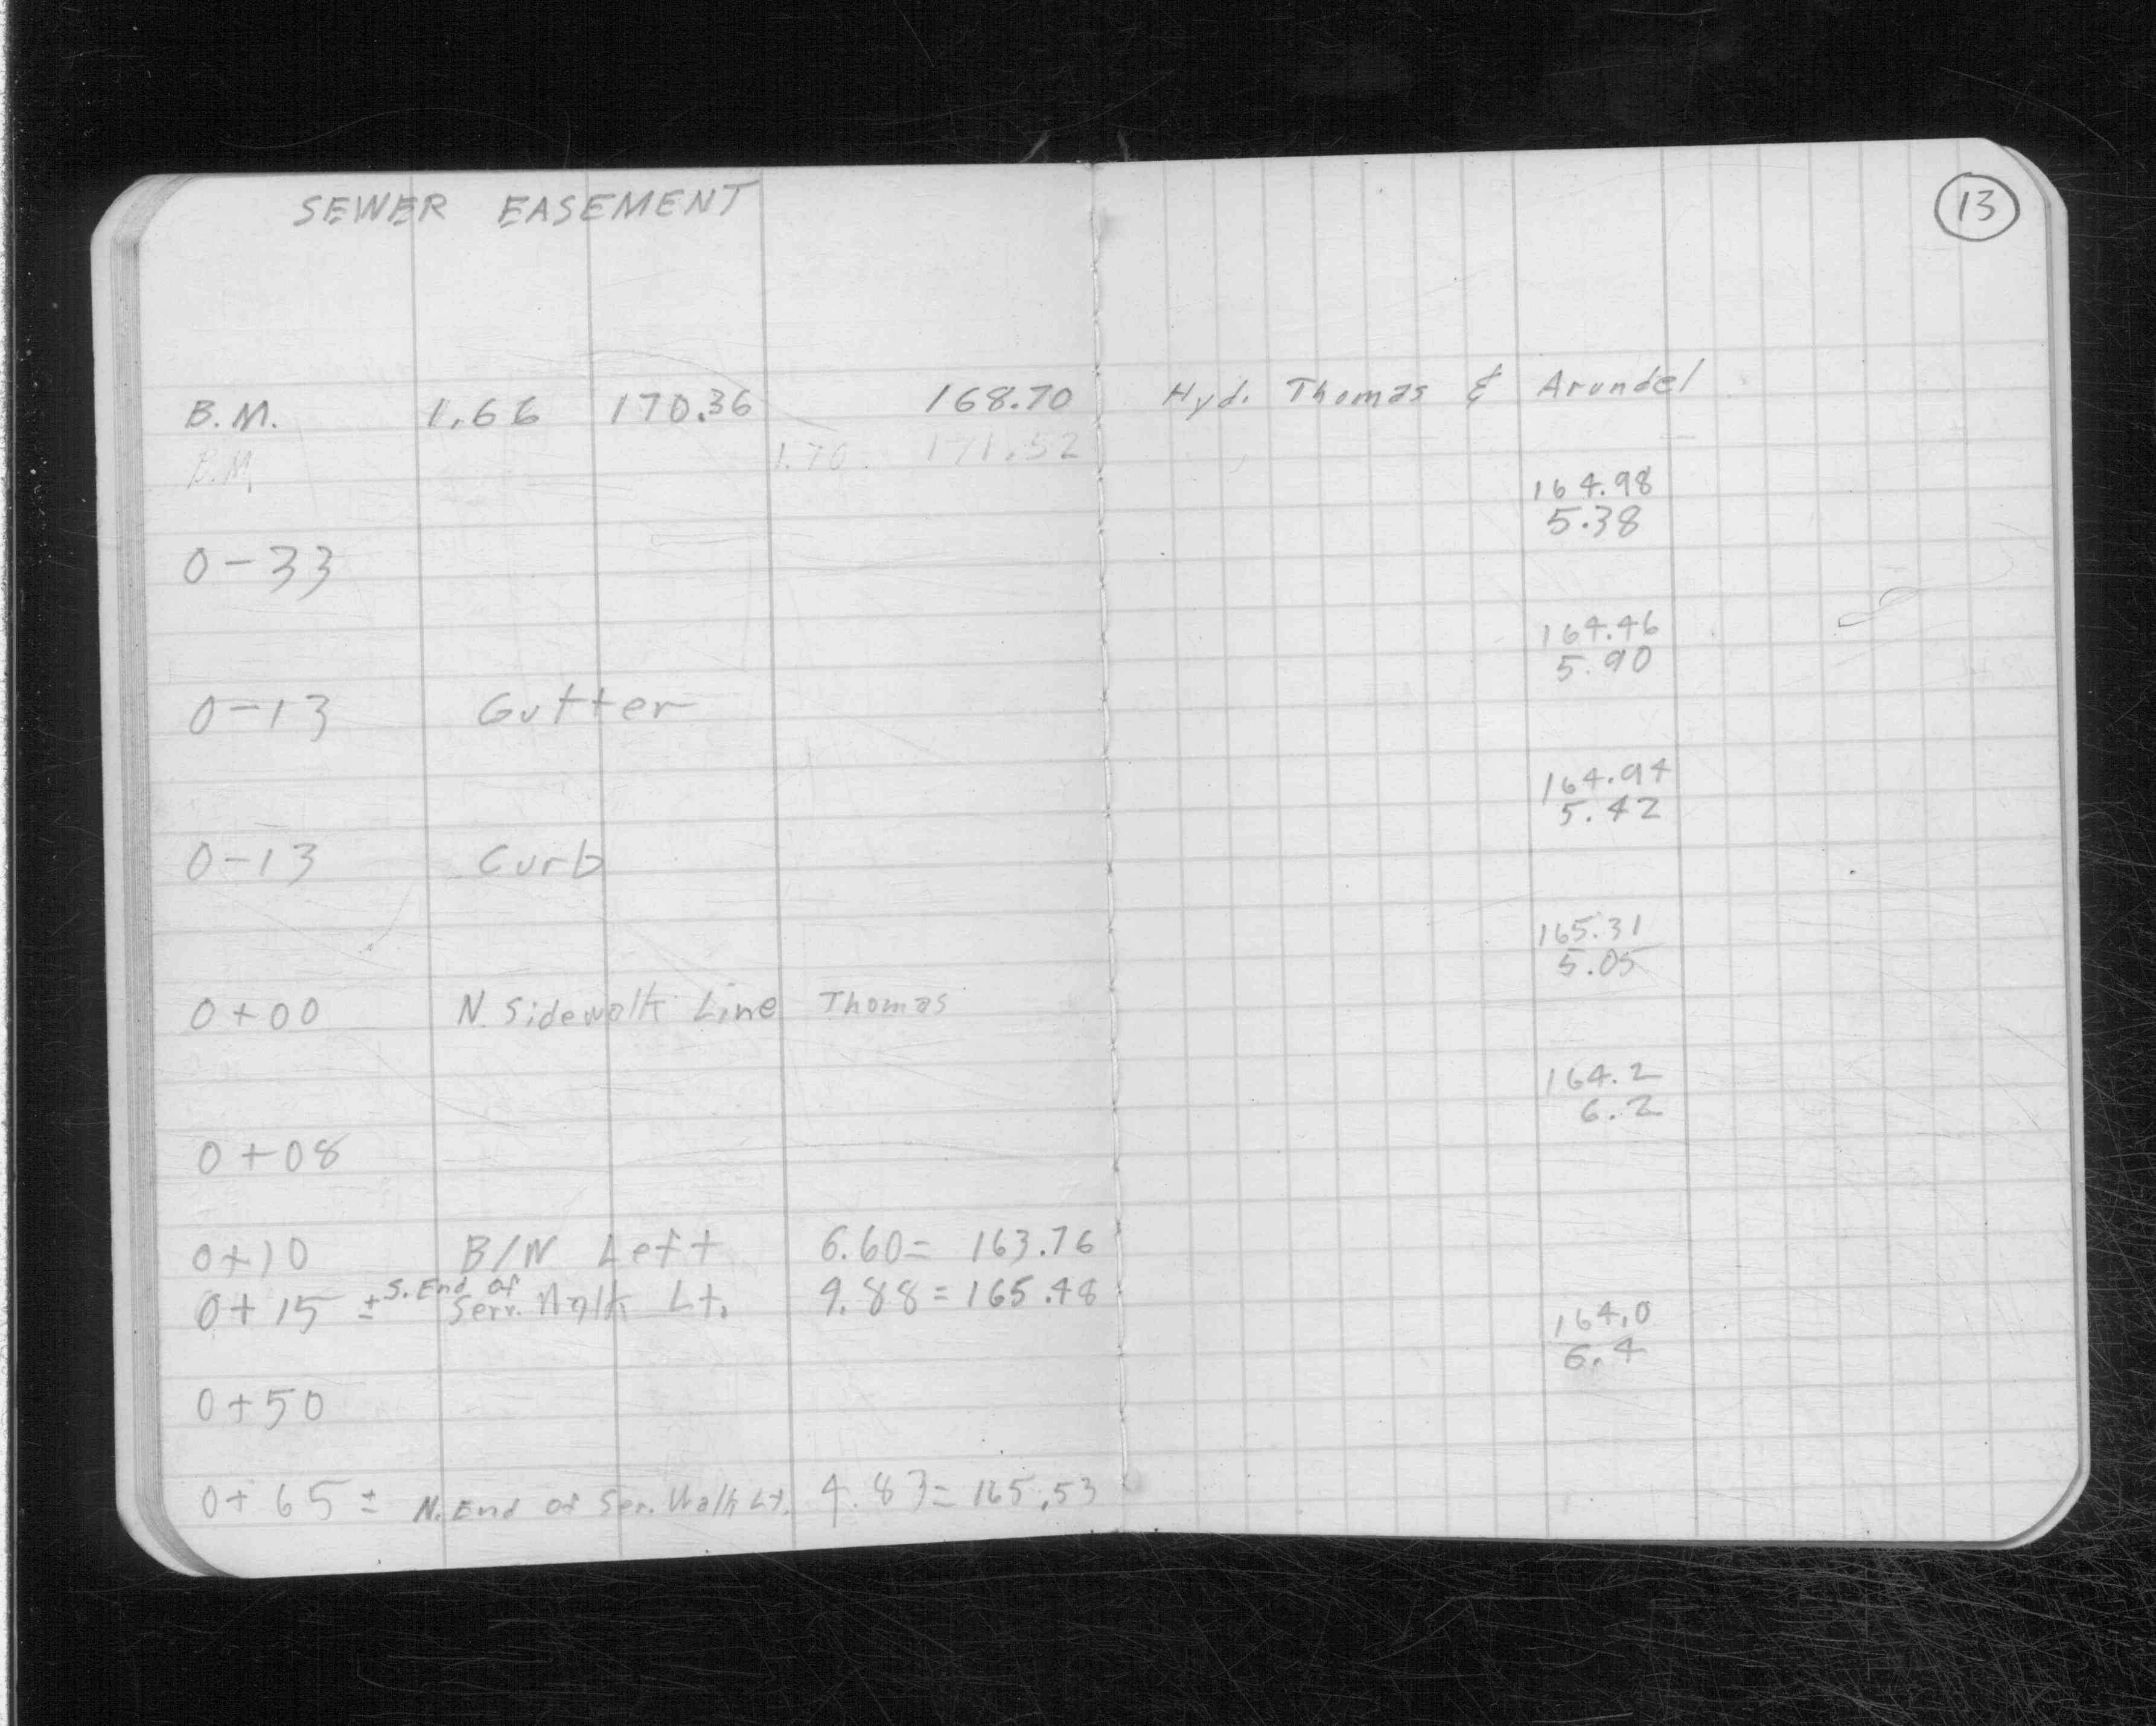 SEWER EASEMENT
13
B.M. 1.66 170.36 168.70 Hyd. Thomas & Arundel
B.M. 1.70 171.52
164.98
5.38
0-33
164.46
5.90
0-13 Gutter
164.94
5.42
0-13 Curb
165.31
5.05
0+00 N. Sidewalk Line Thomas
164.2
6.2
0+08
0+10 B/W Left 6.60= 163.76
0+15 ± S. End of Serv. Walk Lt. 4.88= 165.48
164.0
6.4
0+50
0+65 ± N. End of Ser. Walk Lt. 4.83= 165.53